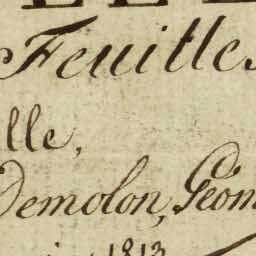 Feuilles
lle,
Demolon, Géom
1813